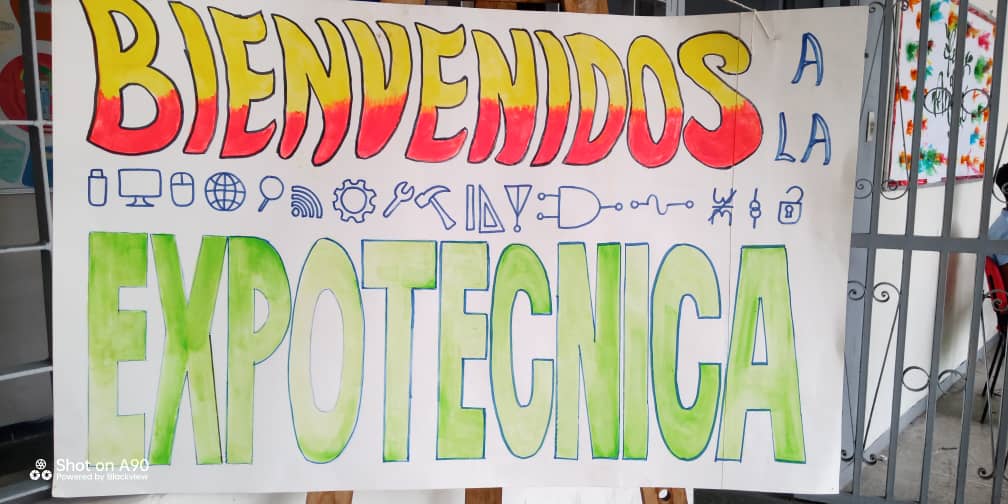 BIENVENIDOS A
LA
EXPOTECNICA
Shot on A90
Powered by Blackview